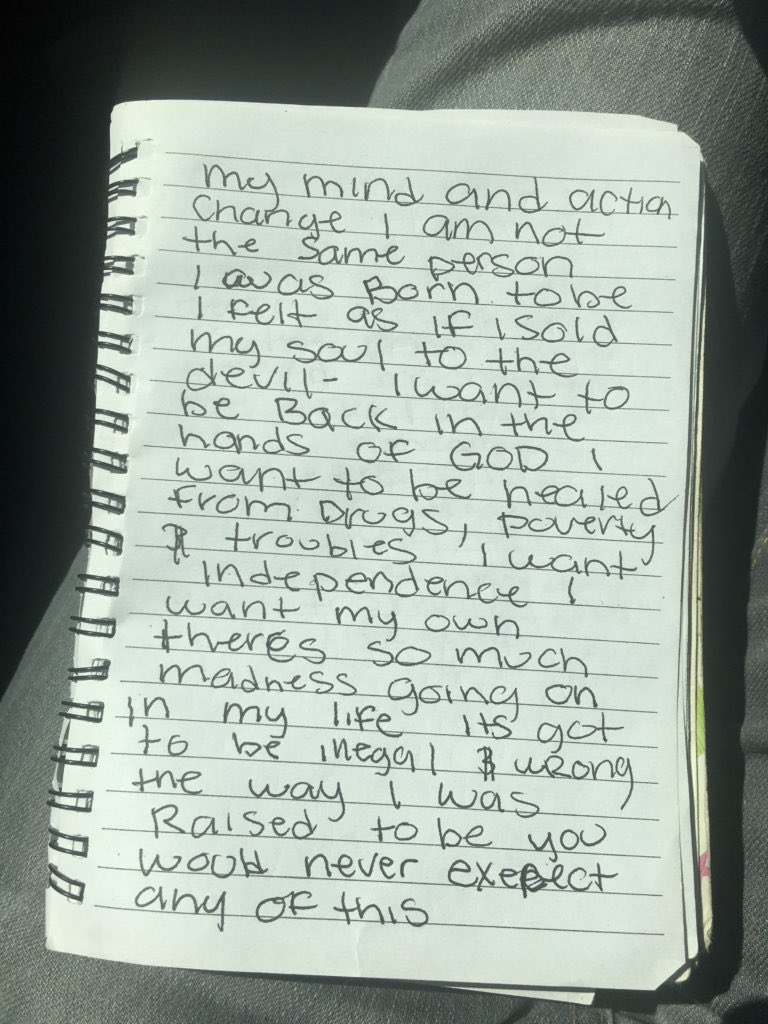 my mind and action
change I am not
the same person
I was Born to be
I felt as if I sold
my soul to the
devil- I want to
be Back in the
hands of GOD I
want to be healed
from Drugs, poverty
& troubles I want
Independence I
want my own
theres so much
madness going on
in my life its got
to be inegal & wrong
the way I was
Raised to be you
would never exepect
any of this